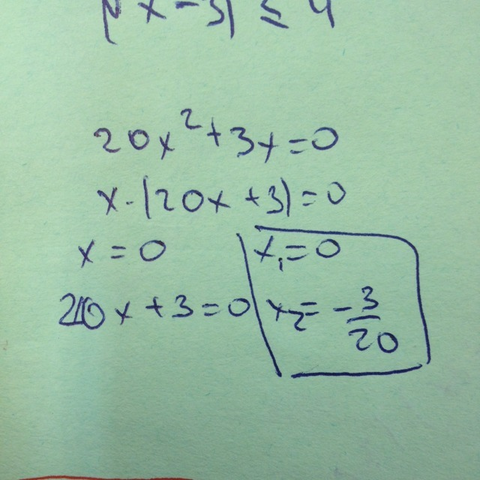 x-3| ≤ 4
20x²+3x=0
x·(20x+3)=0
x=0 x₁=0
20x+3=0 x₂=-3/20